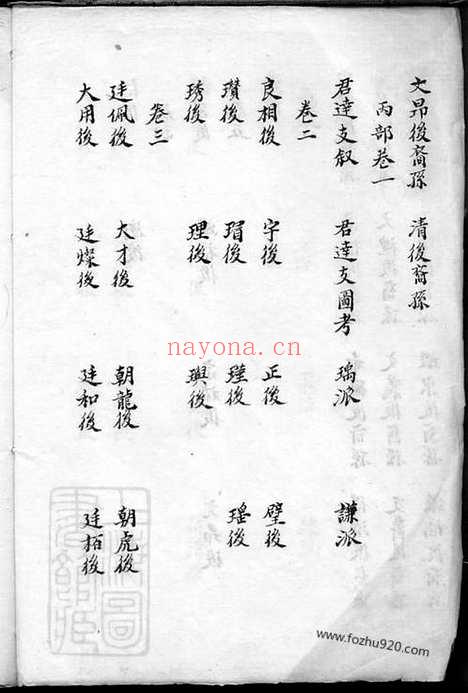 文昂後裔孫 清後裔孫
丙部卷一
君達支叙 君達支圖考 瑀派 謙派
卷二
良相後 宇後 正後 璧後
瓚後 瑁後 瑾後 瑤後
琇後 理後 璵後
卷三
廷佩後 大才後 朝龍後 朝虎後
大用後 廷燦後 廷和後 廷栢後
nayona.cn
www.fozhu920.com